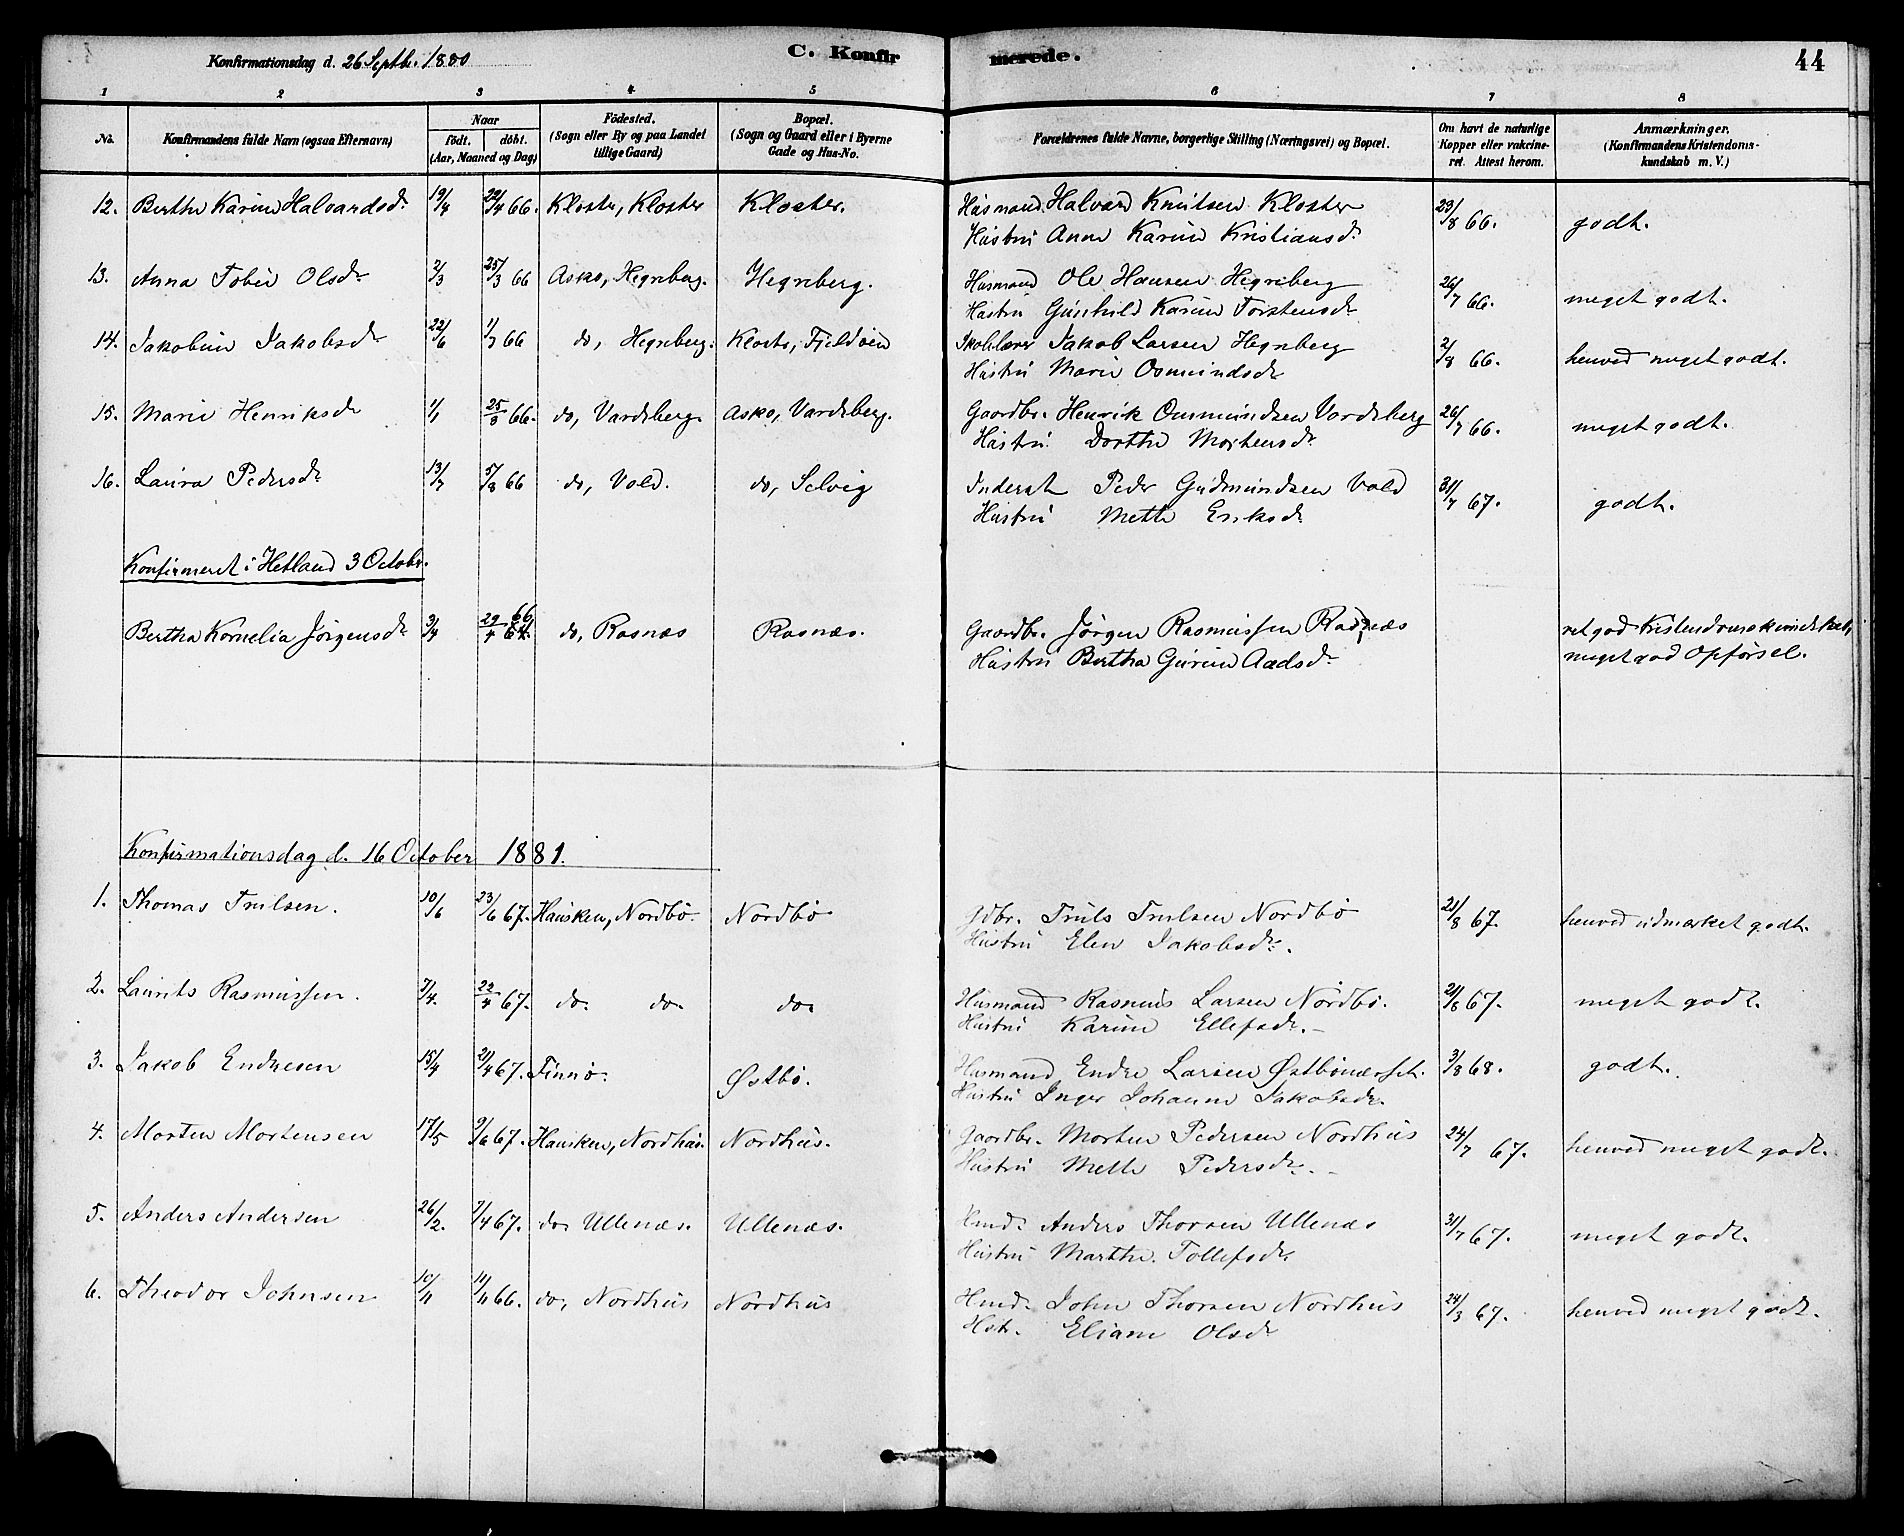 Konfirmationsdag d. 26 Septb. 1880 C. Konfirmerede. 44
1 2 3 4 5 6 7 8
No. Konfirmandens fulde Navn (ogsaa Efternavn) Naar födt. döbt. (Aar, Maaned og Dag) Födested. (Sogn eller By og paa Landet tillige Gaard) Bopæl. (Sogn og Gaard eller i Byerne Gade og Hus-No. Forældrenes fulde Navne, borgerlige Stilling (Næringsvei) og Bopæl. Om havt de naturlige Kopper eller vakcineret. Attest herom. Anmærkninger. (Konfirmandens Kristendomskundskab m. V.)
12. Berthe Karine Halvardsdr 19/4 29/4 66. Kloster, Kloster Kloster. Husmand Halvard Knutsen Kloster 23/8 66. godt.
Hustru Anne Karine Kristiansdr
13. Anna Tobie Olsdr 2/3 25/3 66 Asko, Hegreberg. Hegreberg. Husmand Ole Hansen Hegreberg 26/7 66. meget godt.
Hustru Gunhild Karine Torstensdr
14. Jakobine Jakobsdr 22/6 1/7 66 do, Hegreberg. Kloster, Fjeldöen Skolelærer Jakob Larsen Hegreberg 2/8 66. henved meget godt.
Hustru Marie Osmundsdr
15. Marie Henriksdr 1/1 25/3 66. do, Vardsberg. Asko, Vardsberg. Gaardbr. Henrik Osmundsen Vardsberg 26/7 66. meget godt.
Hustru Dorthe Mortensdr
16. Laura Pedersdr 13/7 5/8 66 do, Vold. do, Selvig Inderst Peder Gudmundsen Vold 31/7 67. godt.
Hustru Mette Eriksdr
Konfirmeret i Hetland 3 Octobr.
Bertha Kornelia Jörgensdr 3/4 29/4 66 do, Rasnæs Rasnæs. Gaardbr. Jörgen Rasmussen Rasnæs ret god Kristendomskundskab,
Hustru Bertha Gurine Aadsdr meget god Opförsel.
Konfirmationsdag d. 16 October 1881.
1. Thomas Trulsen. 10/6 23/6 67. Hausken, Nordbö. Nordbö Gdbr. Truls Trulsen Nordbö 21/8 67. henved udmærket godt.
Hustru Elen Jakobsdr.
2. Laurits Rasmussen. 7/4. 22/4 67. do. do. do. Husmand Rasmus Larsen Nordbö. 21/8 67. meget godt.
Hustru Karine Ellefsdr.
3. Jakob Endresen 15/4 21/4 67. Finnö. Østbö. Husmand Endre Larsen Østbö 3/8 68. godt.
Hustru Inger Johanne Jakobsdr.
4. Morten Mortensen 17/5 9/6 67. Hausken, Nordhus. Nordhus. Gaardbr. Morten Pedersen Nordhus 24/7 67. henved meget godt.
Hustru Mette Pedersdr.
5. Anders Andersen 26/2. 7/4 67. do. Ullenæs. Ullenæs. Hmd. Anders Thorsen Ullenæs 31/7 67. meget godt.
Hustru Marthe Tollefsdr.
6. Theodor Johnsen 10/11 11/11 66. do, Nordhus Nordhus Hmd. John Thorsen Nordhus 24/3 67. henved meget godt.
Hstr. Eliane Olsdr